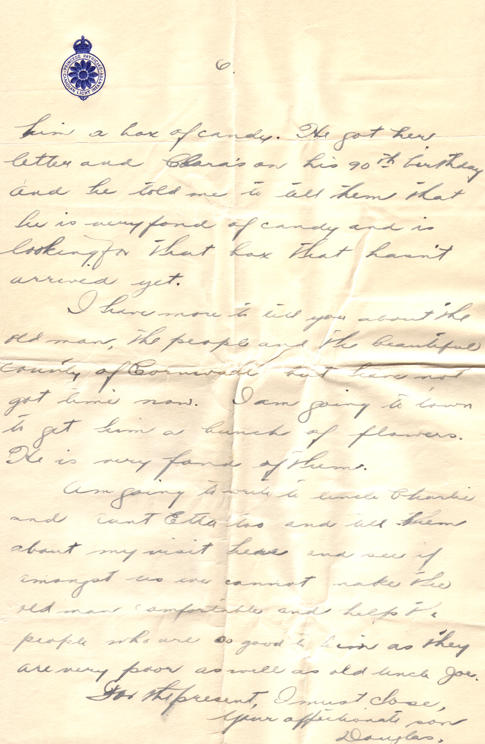 PRINCESS PATRICIA'S
CANADIAN LIGHT INFANTRY
6.
him a box of candy. He got her
letter and Clara's on his 90th birthday
and he told me to tell them that
he is very fond of candy and is
looking for that box that hasn't
arrived yet.
I have more to tell you about the
old man, the people and the beautiful
county of Cornwall but have not
got time now. I am going to town
to get him a bunch of flowers.
He is very fond of them.
Am going to write to uncle Charlie
and aunt Etta too and tell them
about my visit here and see if
amongst us we cannot make the
old man comfortable and help the
people who are so good to him as they
are very poor as well as old uncle Joe.
For the present, I must close,
Your affectionate son
Douglas.